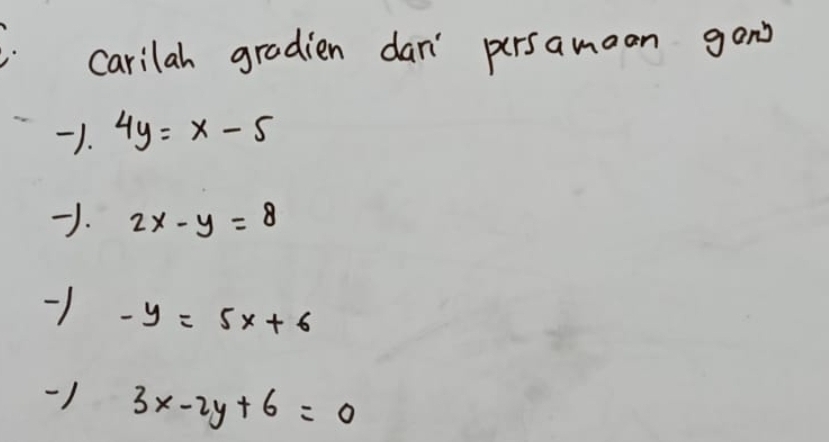 Carilah gradien dari persamaan
-). 4y = x - 5
-). 2x - y = 8
-) -y = 5x + 6
-) 3x - 2y + 6 = 0